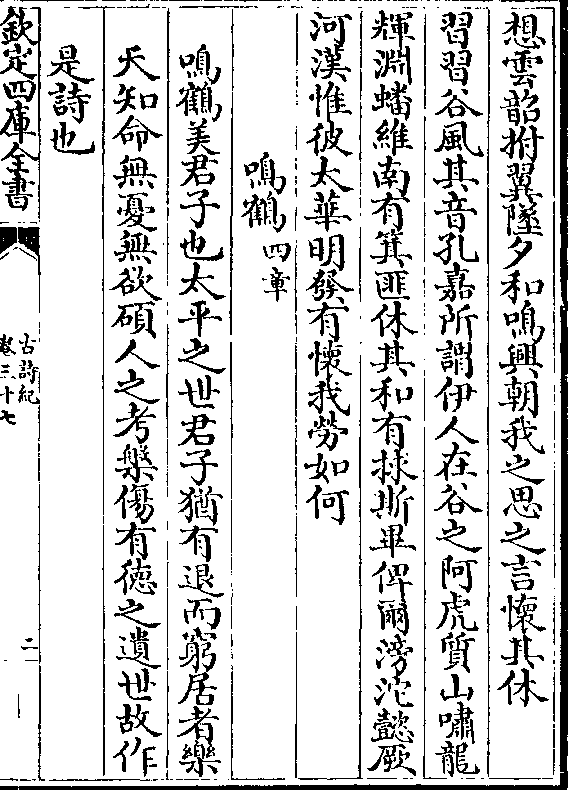 想雲韶拊翼墜夕和鳴興朝我之思之言懷其休
習習谷風其音孔嘉所謂伊人在谷之阿虎質山嘯龍
輝淵蟠維南有箕匪休其和有捄斯畢俾爾滂沱懿厥
河漢惟彼太華明發有懷我勞如何
鳴鶴四章
鳴鶴美君子也太平之世君子猶有退而窮居者樂
天知命無憂無欲碩人之考槃傷有徳之遺世故作
是詩也
欽定四庫全書
古詩紀
卷三十七
二